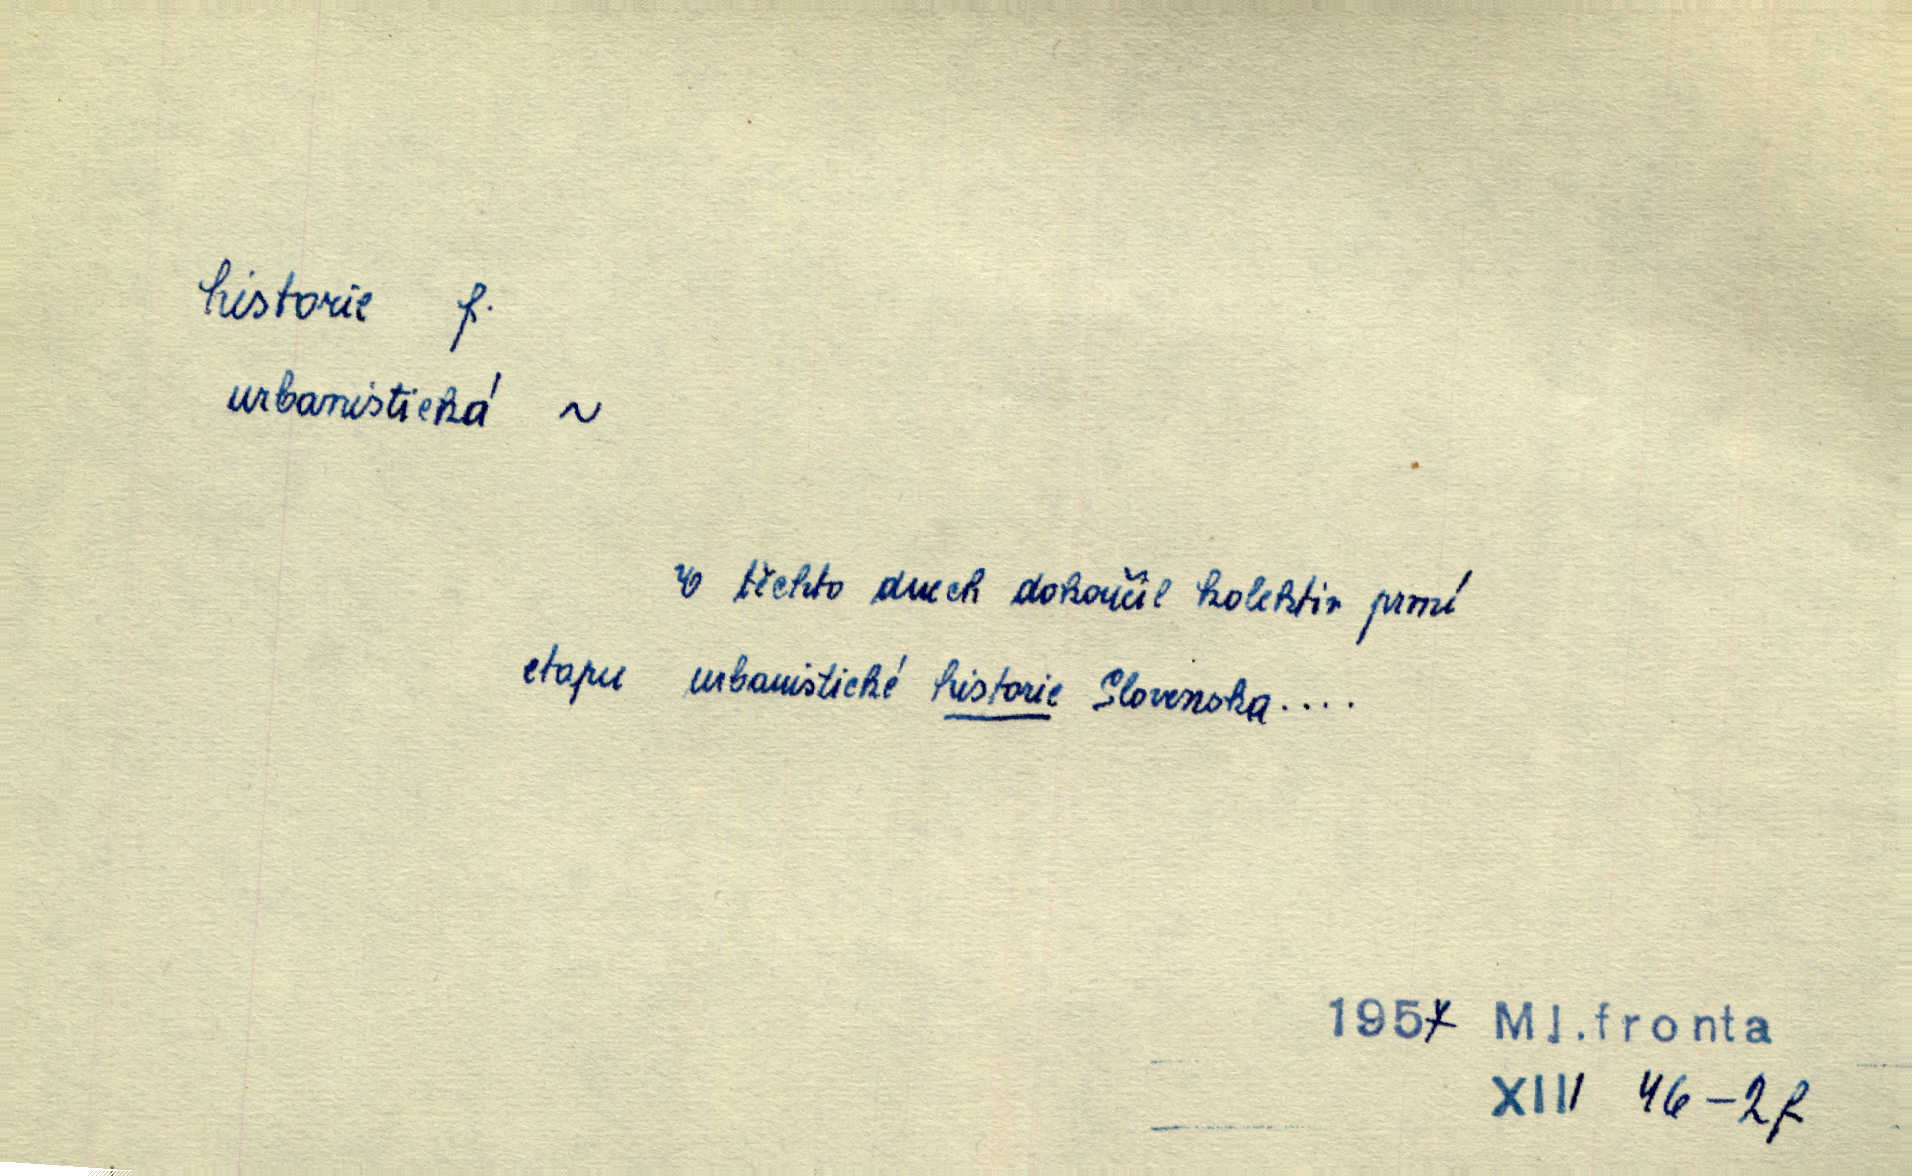 historie f.
urbanistická ~
V těchto dnech dokončil kolektiv první
etapu urbanistické historie Slovenska....
1957 Ml.fronta
XIII 46-2f